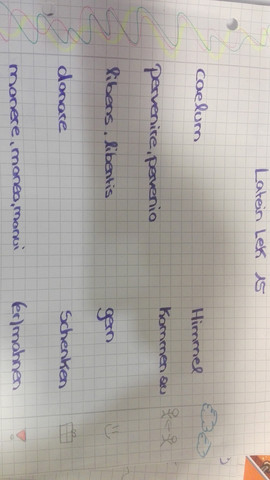 Latein Lek 15
caelum Himmel
pervenire, pervenio kommen zu
libens, libentis gern
donare schenken
monere, moneo, monui (er)mahnen